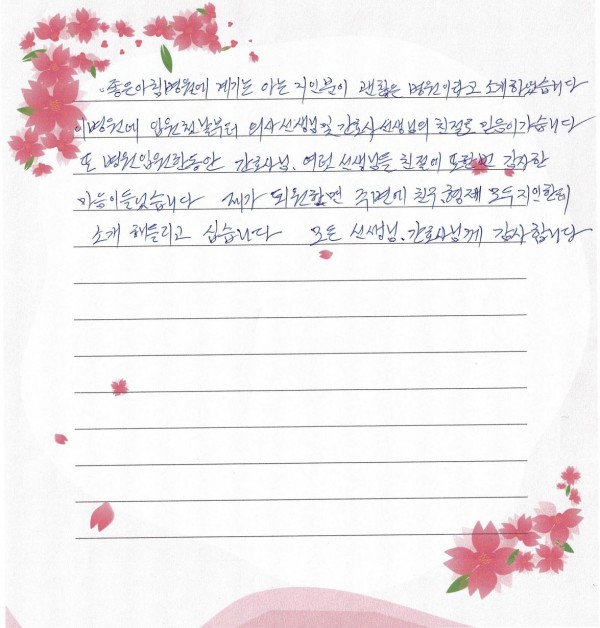 좋은아침병원에 계기는 아는 지인분이 괜찮은 병원이라고 소개하였습니다
이병원에 입원첫날부터 의사선생님및 간호사선생님의 친절로 믿음이가습니다
또 병원입원한동안 간호사님, 여런 선생님들 친절이 또한번 감사한
마음이들었습니다 제가 퇴원한면 주면에 친우,형제 모두지인한테
소개 해들리고 십습니다 모든 선생님,간호사님께 감사합니다